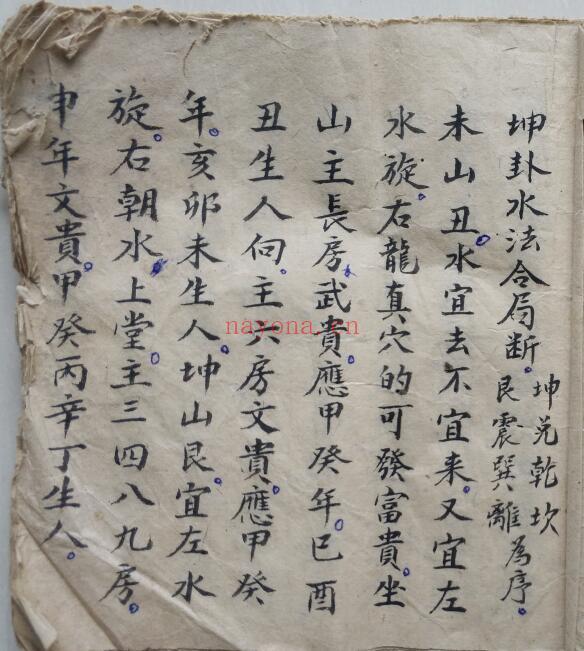 坤卦水法合局断。坤兑乾坎
艮震巽離為序。
未山丑。水宜去不宜来。又宜左
水旋。右龍真穴的可發富貴。坐
山主長房。武貴。應甲癸年。巳酉
丑生人向。主六房文貴。應甲癸
年。亥卯未生人。坤山艮。宜左水
旋。右朝水上堂。主三四八九房。
申年文貴。甲癸丙辛丁生人。
nayona.cn